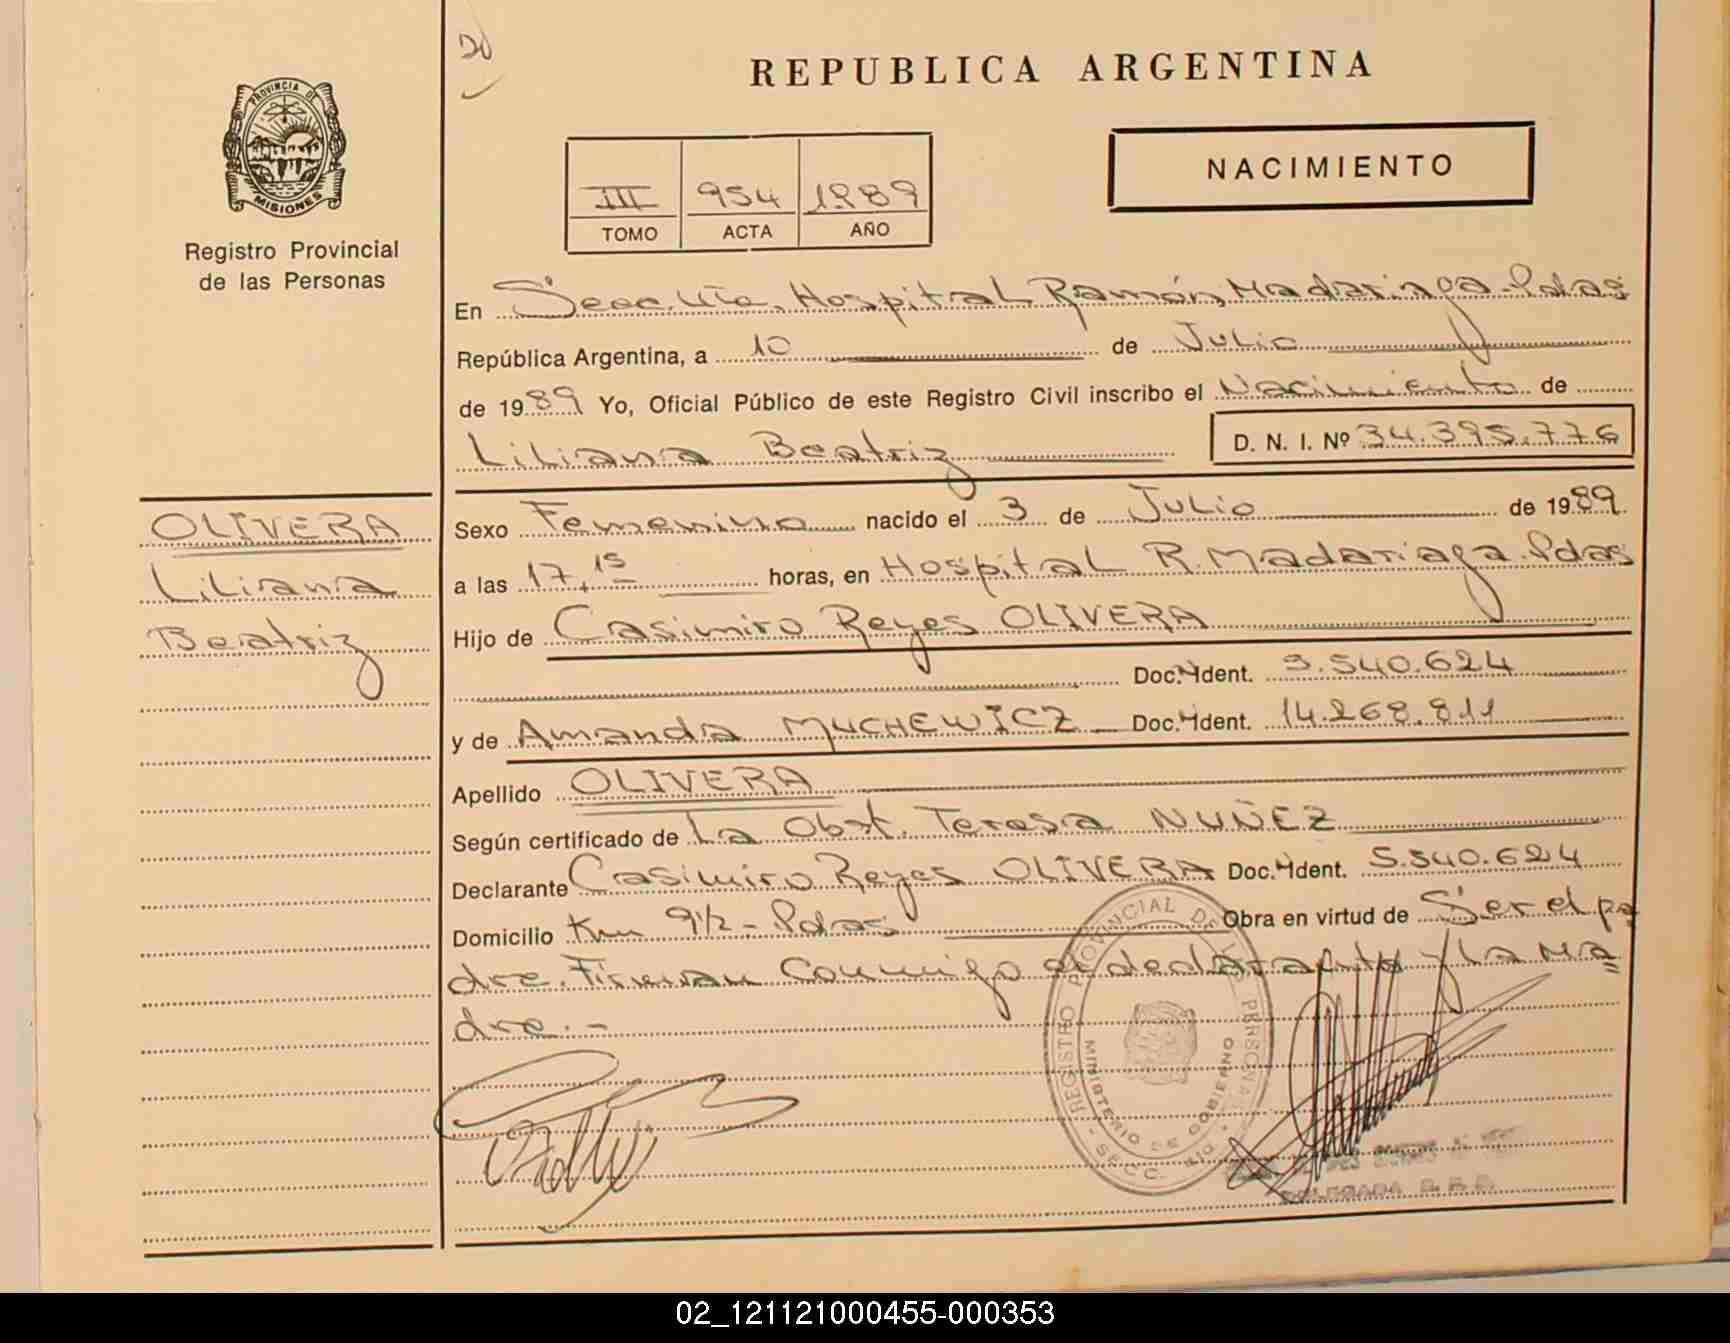 REPUBLICA ARGENTINA
PROVINCIA DE
MISIONES
Registro Provincial
de las Personas
III 954 1989
TOMO ACTA AÑO
NACIMIENTO
En Secc. Hospital Ramón Madariaga - Pdas
República Argentina, a 10 de Julio
de 1989 Yo, Oficial Público de este Registro Civil inscribo el Nacimiento de
Liliana Beatriz D. N. I. Nº 34.395.776
OLIVERA
Liliana
Beatriz
Sexo Femenino nacido el 3 de Julio de 1989
a las 17,15 horas, en Hospital R. Madariaga. Pdas
Hijo de Casimiro Reyes OLIVERA
Doc. Ident. 5.540.624
y de Amanda MUCHEWICZ Doc. Ident. 14.268.811
Apellido OLIVERA
Según certificado de La Obst. Teresa NUÑEZ
Declarante Casimiro Reyes OLIVERA Doc. Ident. 5.540.624
Domicilio Km 9½ - Pdas Obra en virtud de Ser el pa
dre. Firman Conmigo el declarante y La Ma=
dre.-
REGISTRO PROVINCIAL DE LAS PERSONAS
MINISTERIO DE GOBIERNO
SECC.
DELEGADA
02_121121000455-000353